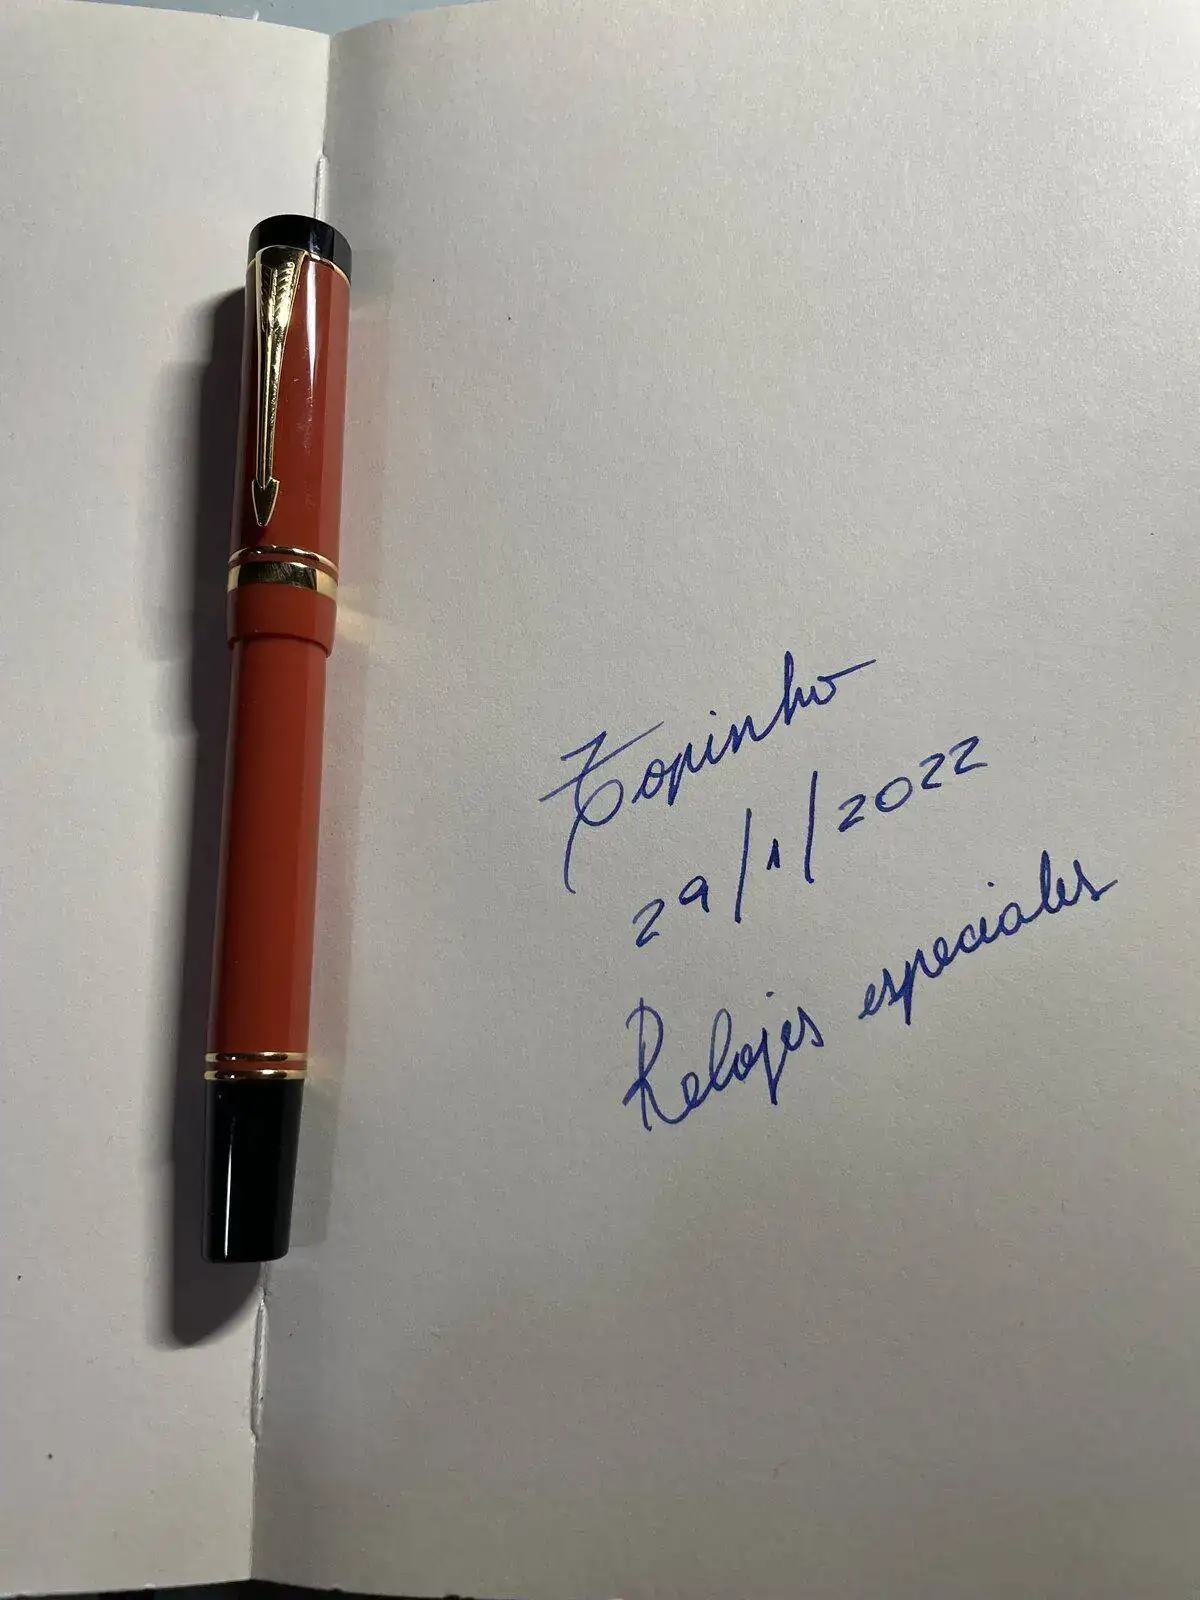 Zopinho
29/1/2022
Relojes especiales